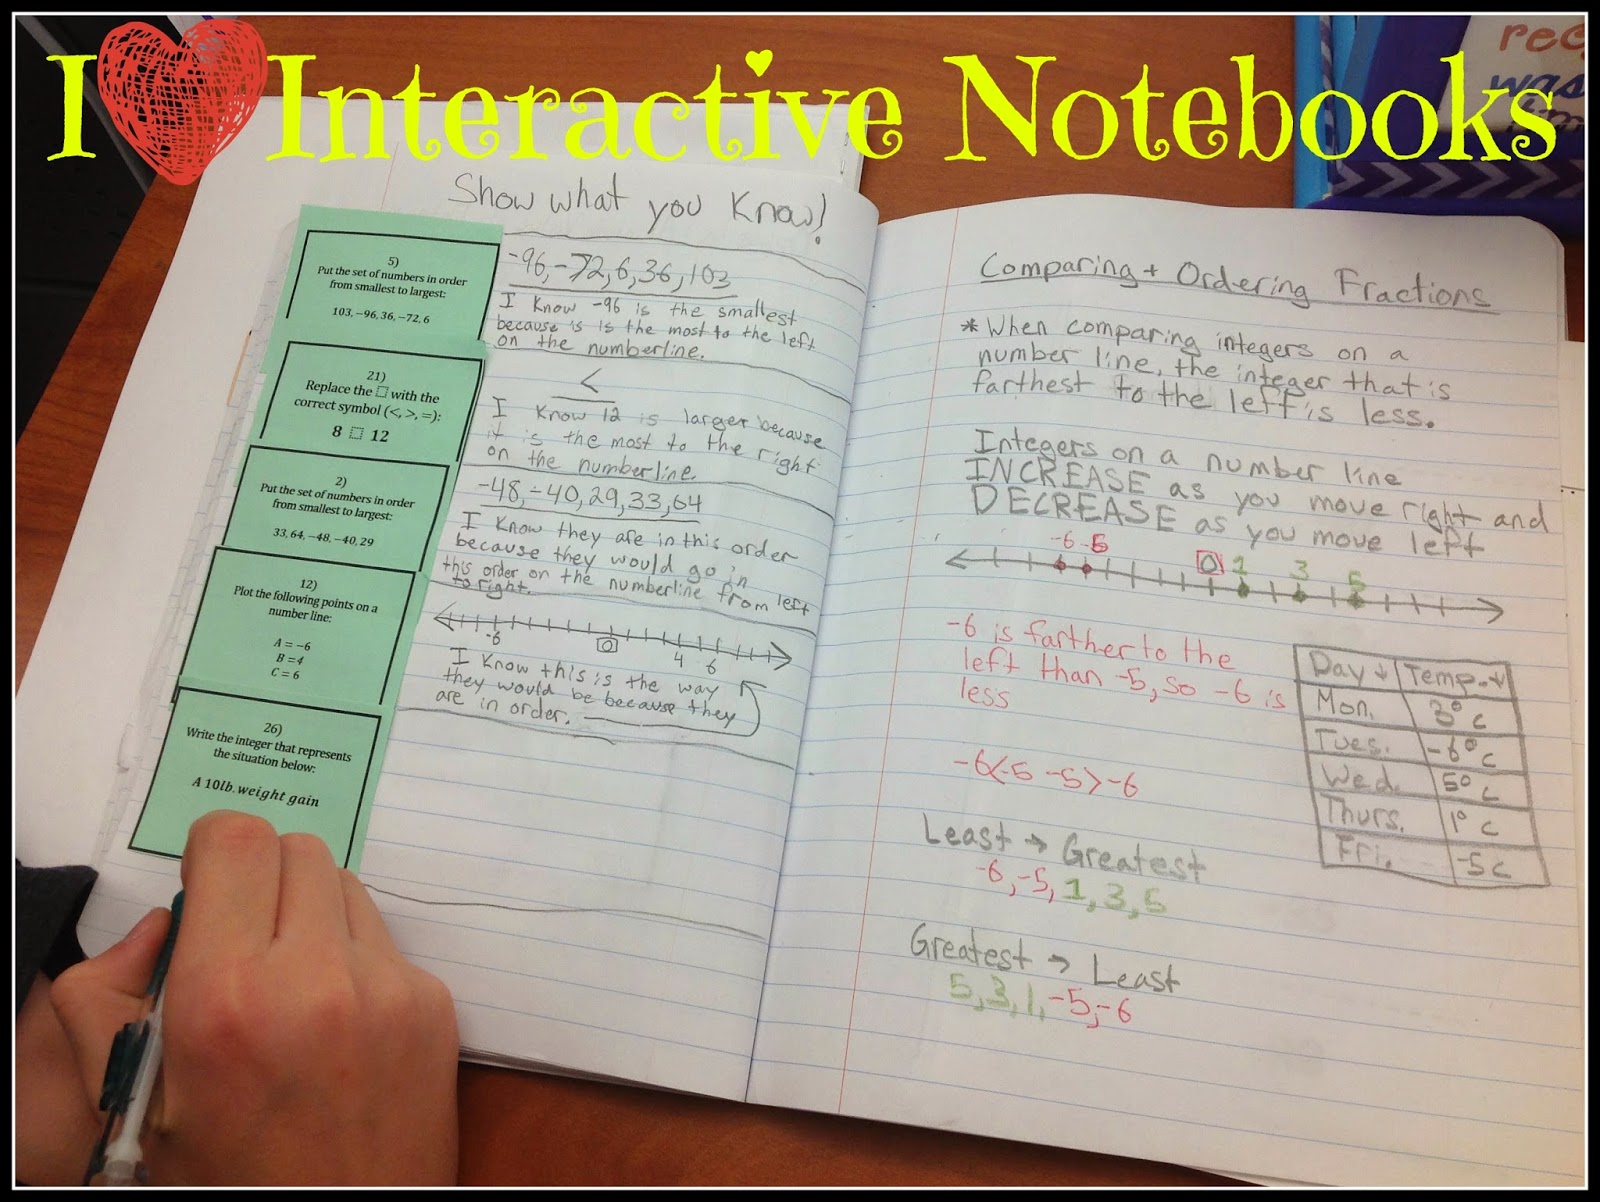 I Interactive Notebooks
Show what you know!
5)
Put the set of numbers in order
from smallest to largest:
103, −96, 36, −72, 6
-96, -72, 6, 36, 103
I know -96 is the smallest
because is is the most to the left
on the numberline.
21)
Replace the □ with the
correct symbol (<, >, =):
8 □ 12
<
I know 12 is larger because
it is the most to the right
on the numberline.
2)
Put the set of numbers in order
from smallest to largest:
33, 64, −48, −40, 29
-48, -40, 29, 33, 64
I know they are in this order
because they would go in
this order on the numberline from left
to right.
12)
Plot the following points on a
number line:
A = −6
B = 4
C = 6
-6 0 4 6
I know this is the way
they would be because they
are in order.
26)
Write the integer that represents
the situation below:
A 10lb. weight gain
Comparing + Ordering Fractions
* When comparing integers on a
number line, the integer that is
farthest to the left is less.
Integers on a number line
INCREASE as you move right and
DECREASE as you move left
-6 -5 0 1 3 5
-6 is farther to the
left than -5, so -6 is
less
Day ↓ Temp. ↓
Mon. 3° c
Tues. -6° c
Wed. 5° c
Thurs. 1° c
Fri. -5 c
-6<-5 -5>-6
Least → Greatest
-6, -5, 1, 3, 5
Greatest → Least
5, 3, 1, -5, -6
rec
was